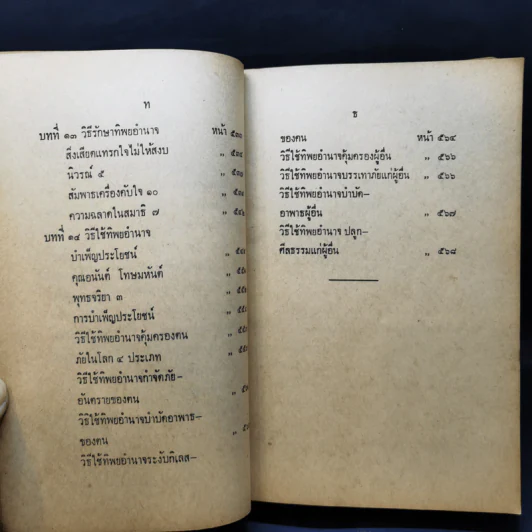 ท
บทที่ ๑๓ วิธีรักษาทิพยอำนาจ หน้า
สิ่งเสียดแทรกใจไม่ให้สงบ „
นิวรณ์ ๕ „
สัมพาธเครื่องคับใจ ๑๐ „
ความฉลาดในสมาธิ ๗ „
บทที่ ๑๔ วิธีใช้ทิพยอำนาจ
บำเพ็ญประโยชน์ „
คุณอนันต์ โทษมหันต์ „
พุทธจริยา ๓ „
การบำเพ็ญประโยชน์ „
วิธีใช้ทิพยอำนาจคุ้มครองตน „
ภัยในโลก ๔ ประเภท „
วิธีใช้ทิพยอำนาจกำจัดภัย–
อันตรายของตน „
วิธีใช้ทิพยอำนาจบำบัดอาพาธ–
ของตน „
วิธีใช้ทิพยอำนาจระงับกิเลส–
ธ
ของตน หน้า ๕๖๔
วิธีใช้ทิพยอำนาจคุ้มครองผู้อื่น „ ๕๖๖
วิธีใช้ทิพยอำนาจบรรเทาภัยแก่ผู้อื่น „ ๕๖๖
วิธีใช้ทิพยอำนาจบำบัด–
อาพาธผู้อื่น „ ๕๖๗
วิธีใช้ทิพยอำนาจ ปลูก–
ศีลธรรมแก่ผู้อื่น „ ๕๖๘